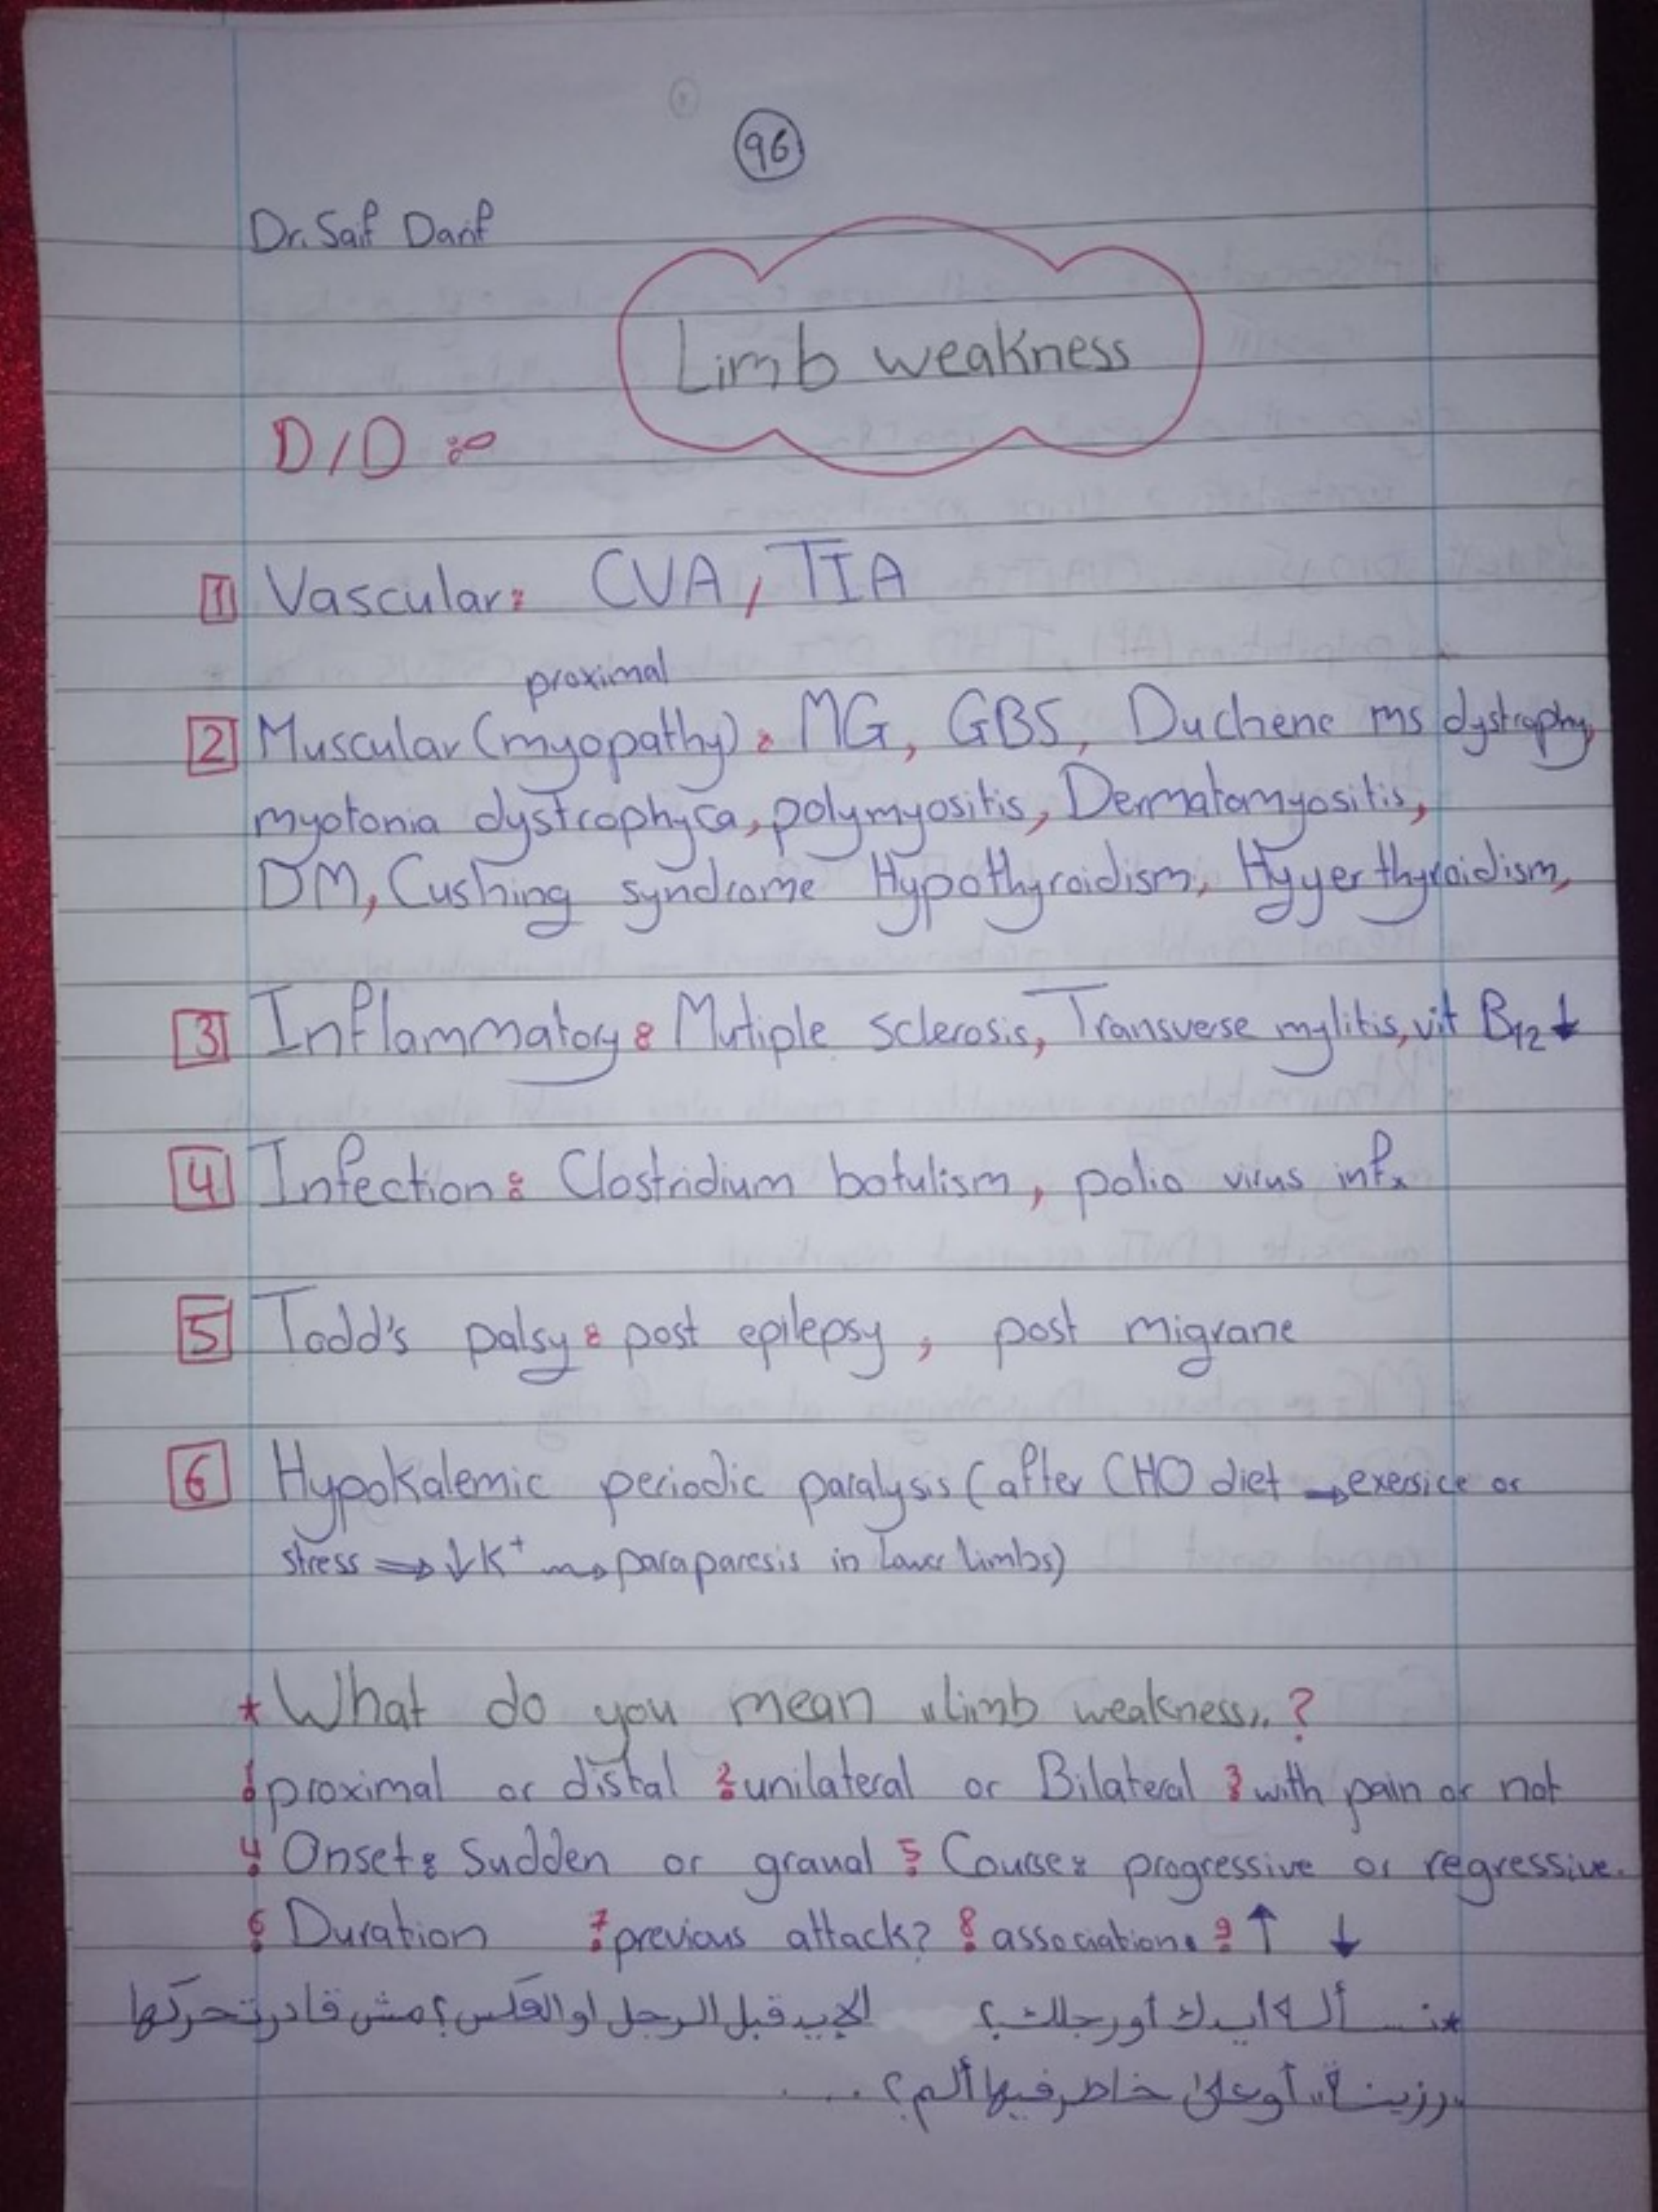 96
Dr. Saif Darif
Limb weakness
D/D :
1 Vascular: CVA, TIA
proximal
2 Muscular (myopathy): MG, GBS, Duchene ms dystrophy,
myotonia dystrophyca, polymyositis, Dermatomyositis,
DM, Cushing syndrome Hypothyroidism, Hyyerthyroidism,
3 Inflammatory: Mutiple sclerosis, Transverse mylitis, vit B12↓
4 Infection: Clostridium botulism, polio virus infx
5 Todd's palsy: post epilepsy, post migrane
6 Hypokalemic periodic paralysis (after CHO diet → exersice or
stress ⇒ ↓K+ → paraparesis in Lower limbs)
* What do you mean "limb weakness"?
1 proximal or distal 2 unilateral or Bilateral 3 with pain or not
4 Onset: Sudden or graual 5 Course: progressive or regressive.
6 Duration 7 previous attack? 8 association. 9 ↑ ↓
*نسأله ايدك أو رجلك؟ الإيد قبل الرجل او العكس؟ مش قادر تحركها
"رزينة" أو على خاطر فيها ألم؟ .....